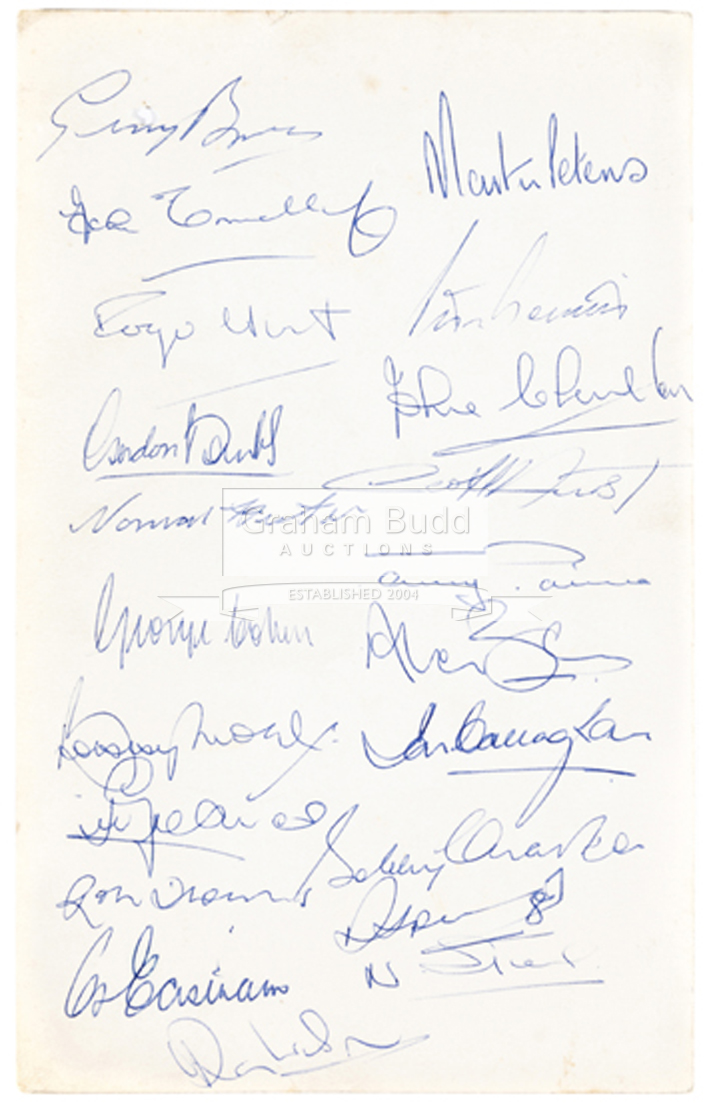 Gerry Byrne
Martin Peters
John Connelly
Roger Hunt
Jimmy Greaves
John Charlton
Gordon Banks
Geoff Hurst
Norman Hunter
Graham Budd
AUCTIONS
Terry Paine
ESTABLISHED 2004
George Cohen
Alan Ball
Bobby Moore
Ian Callaghan
Bobby Charlton
Ron Flowers
R Springett
G Eastham
N Stiles
Ray Wilson